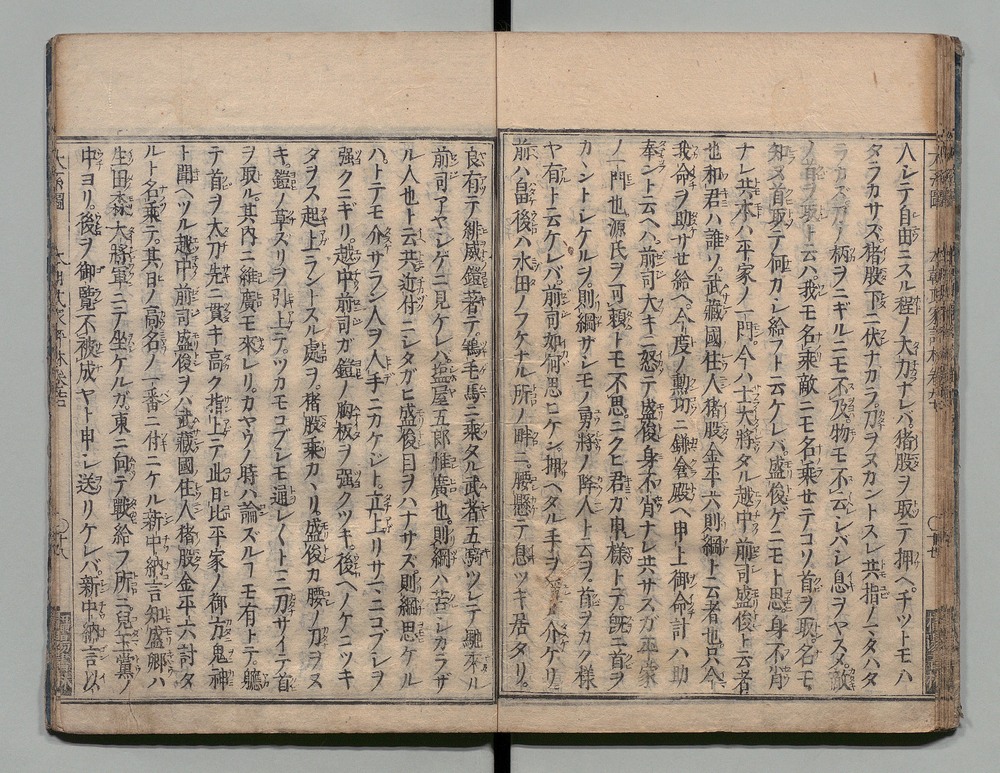 入レテ自由ニスル程ノ大力ナレバ。猪股ヲ取テ押ヘ。チツトモハ
タラカサズ。猪股下ニ伏ナカラ。刀ヲヌカントスレ共指
柄ヲニギルニモ不及。物モ不云シバシ息ヲヤスメ。敵
ノ首ヲ取ト云ハ。我モ名乗敵ニモ名乗セテコソ首ヲ取名モ
知ヌ首取テ何カシ給フト云ケレバ。盛俊ゲニモト思。身不肖
ナレ共。本ハ平家ノ一門。今ハ士大將タル越中前司盛俊ト云者
也。和君ハ誰ソ。武藏國住人猪股金平六則綱ト云者也。只今
我命ヲ助サセ給ヘ。今度ノ勲功ニ鎌倉殿ヘ申上御命計ハ助
奉ント云ヘハ。前司大キニ怒テ盛俊身不肖ナレ共サスガ平家
ノ一門也。源氏ヲ可頼トモ不思。ニクヒ君ガ申樣トテ。既ニ首ヲ
カントシケルヲ。則綱サレモノ勇將ノ降人ト云ヲ。首ヲカク樣
ヤ有ト云ケレバ。前司如何思ヒケン。押ヘタル手ヲ 介ケリ。
前ハ畠後ハ水田ノフケナル所ノ畔ニ。腰懸テ息ツキ居タリ。
良有テ緋威鎧著テ。鴾毛馬ニ乗タル武者五騎ツレテ馳來ル
前司アヤシゲニ見ケレハ。塩屋五郎惟廣也。則綱ハ苦シカラザ
ル人也ト云共。近付ニシタガヒ盛俊目ヲハナサズ則綱思ケル
ハ。トテモ介サラン人ヲ人手ニカケジト。立上リサマニコブシヲ
强クニギリ。越中前司ガ鎧ノ胸板ヲ强クツキ。後ヘノケニツキ
タヲス起上ラントスル處ヲ。猪股乗カヽリ。盛俊カ腰ノ刀ヲヌ
キ。鎧ノ草スリヲ引上テ。ツカモコブシモ通レ〱ト三刀サイテ首
ヲ取ル。其内ニ維廣モ來レリ。カヤウノ時ハ論ズルフモ有トテ。軈
テ首ヲ太刀先ニ貫キ高ク指上テ此日比平家ノ御方鬼神
ト聞ヘツル越中前司盛俊ヲハ武藏國住人猪股金平六討タ
ルト名乗テ。其日ノ高名ノ一番ニ付ニケル。新中納言知盛卿ハ
生田森大將軍ニテ坐ケルガ。東ニ向テ戰給フ所ニ。兒玉黨ノ
中ヨリ。後ヲ御覽不被成ヤト申シ送リケレバ。新中納言以
大系圖
本朝武家